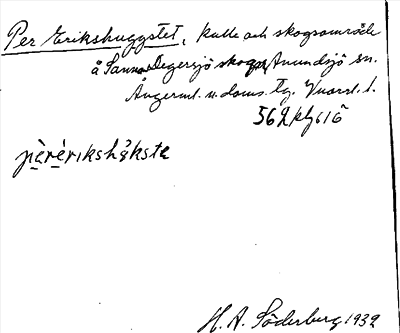 Per Erikshuggstet, kulle och skogsområde
å Sanna Degersjö skog, Anundsjö sn.
Ångerml. n. doms. tg.
562
pèrèrikshåkste
H. A. Söderberg 1932